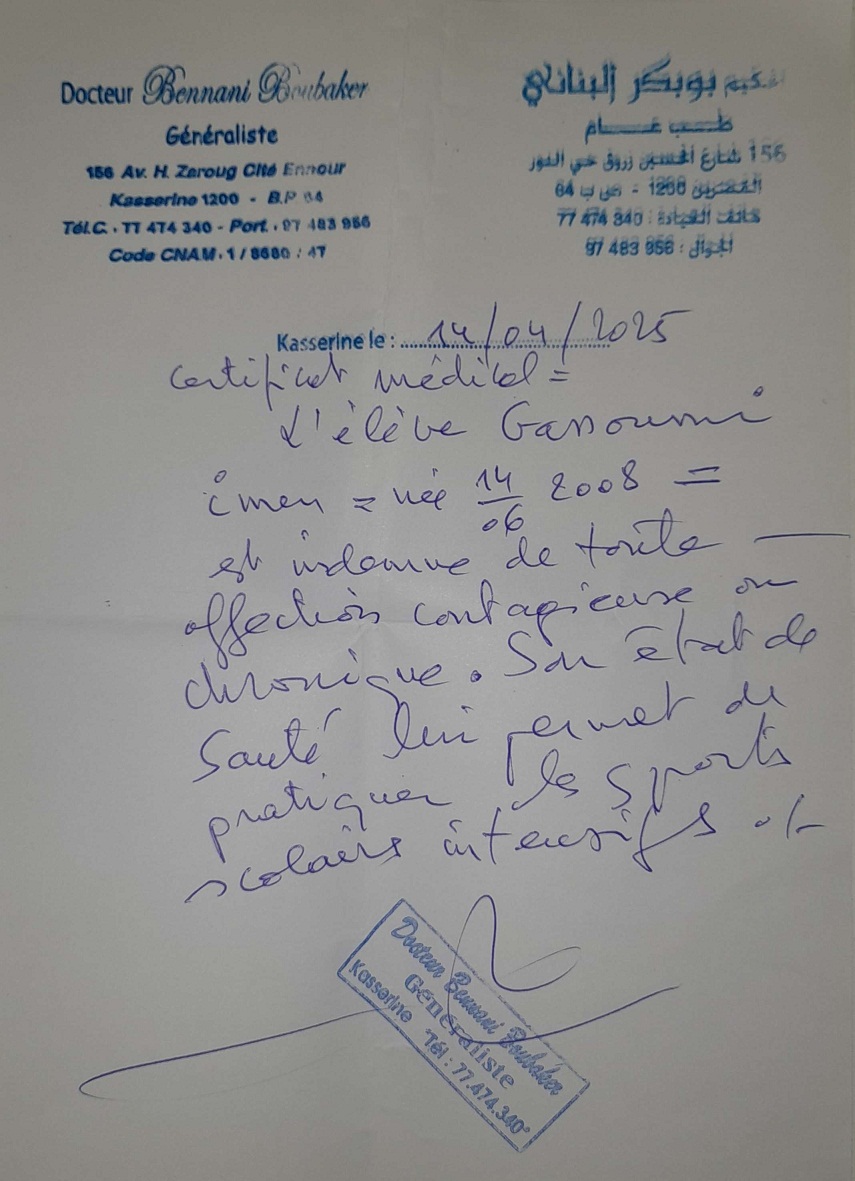 Docteur Bennani Boubaker
Généraliste
156 Av. H. Zaroug Cité Ennour
Kasserine 1200 - B.P 64
Tél.C. : 77 474 340 - Port. : 97 483 956
Code CNAM. 1 / 8680 / 47
بوبكر البناني
طـــب عـــام
156 شارع الحسين زروق حي النور
القصرين 1200 - ص ب 64
هاتف العيادة : 77 474 340
الجوال : 97 483 956
Kasserine le : 14/04/2025
Certificat médical =
L'élève Gassoumi
imen = née 14/06 2008 =
est indemne de toute —
affection contagieuse ou
chronique. Son état de
Santé lui permet de
pratiquer les sports
scolairs intensifs ./-
Docteur Bennani Boubaker
Généraliste
Kasserine Tél : 77.474.340